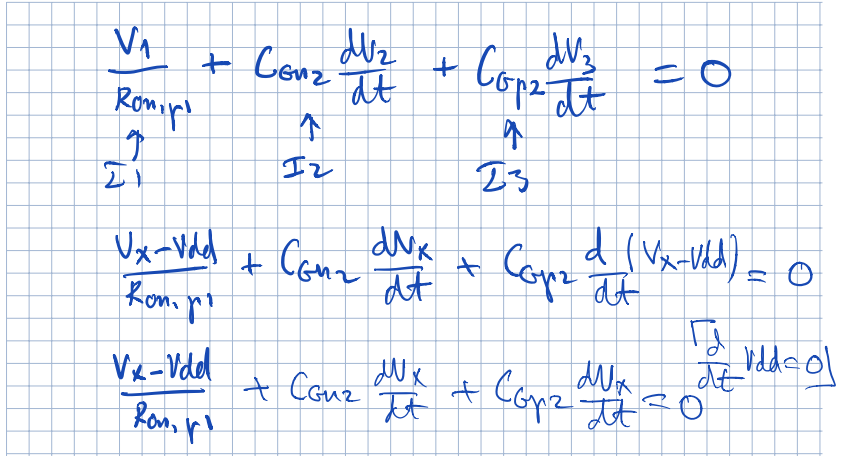 V1/Ron,p1 + CGn2 dV2/dt + CGp2 dV3/dt = 0
↑ ↑ ↑
I1 I2 I3
Vx-Vdd/Ron,p1 + CGn2 dVx/dt + CGp2 d/dt (Vx-Vdd) = 0
Vx-Vdd/Ron,p1 + CGn2 dVx/dt + CGp2 dVx/dt = 0 [d/dt Vdd=0]